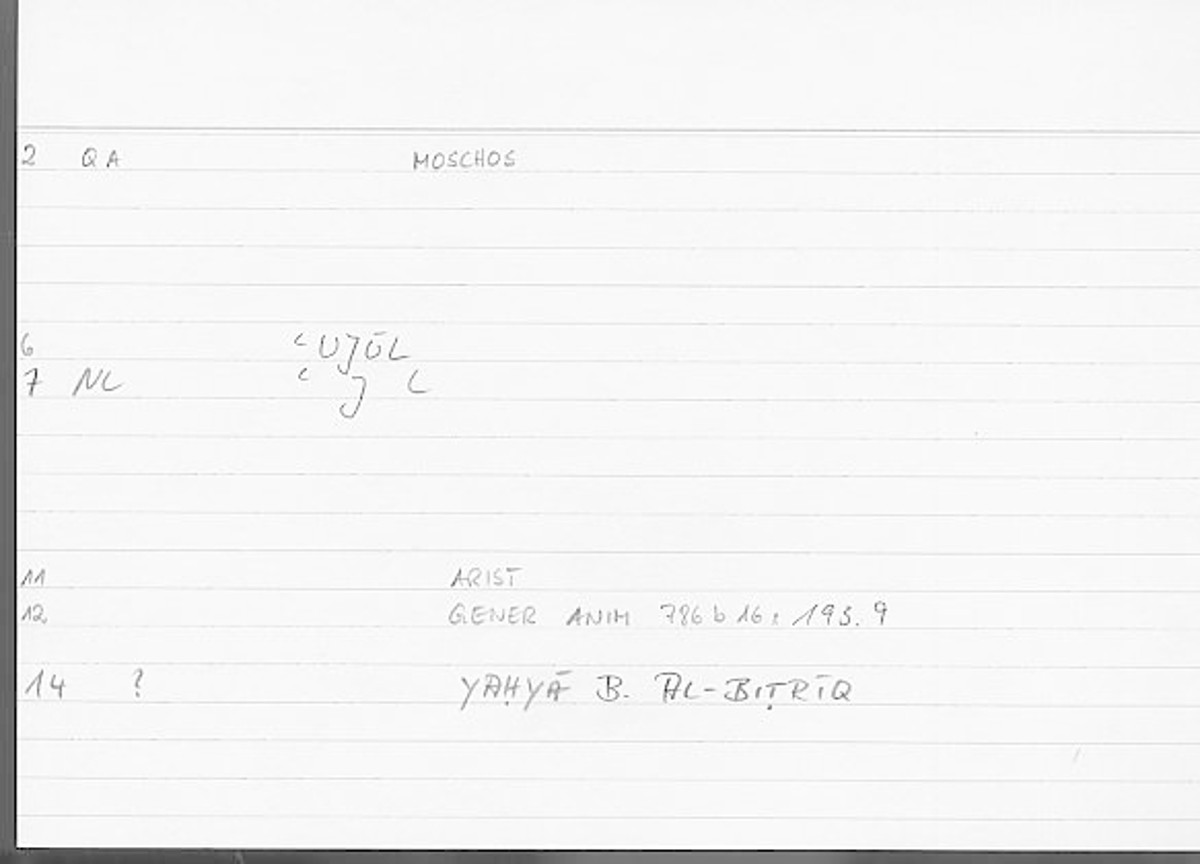 2 QA MOSCHOS
6 ʿUJŪL
7 NL ʿ J L
11 ARIST
12 GENER ANIM 786 b 16 : 193.9
14 ? YAḤYĀ B. AL-BIṬRĪQ